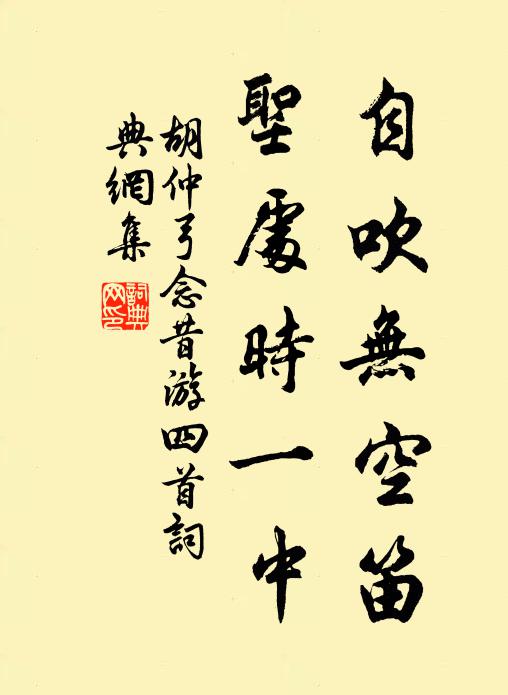 自吹無空笛
聖處時一中
胡仲弓念昔游四首詞
典網集
詞典網印